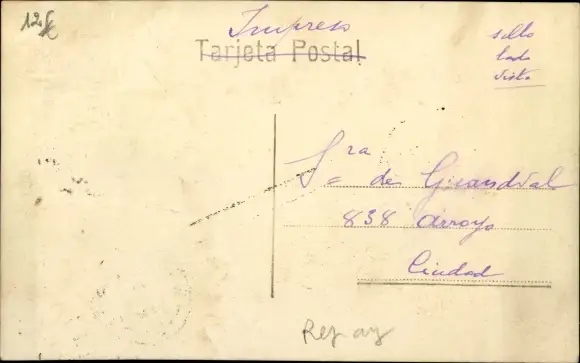 Impreso
Tarjeta Postal
sello
lado
vista
Sra
de Grandval
838 Arroyo
Ciudad